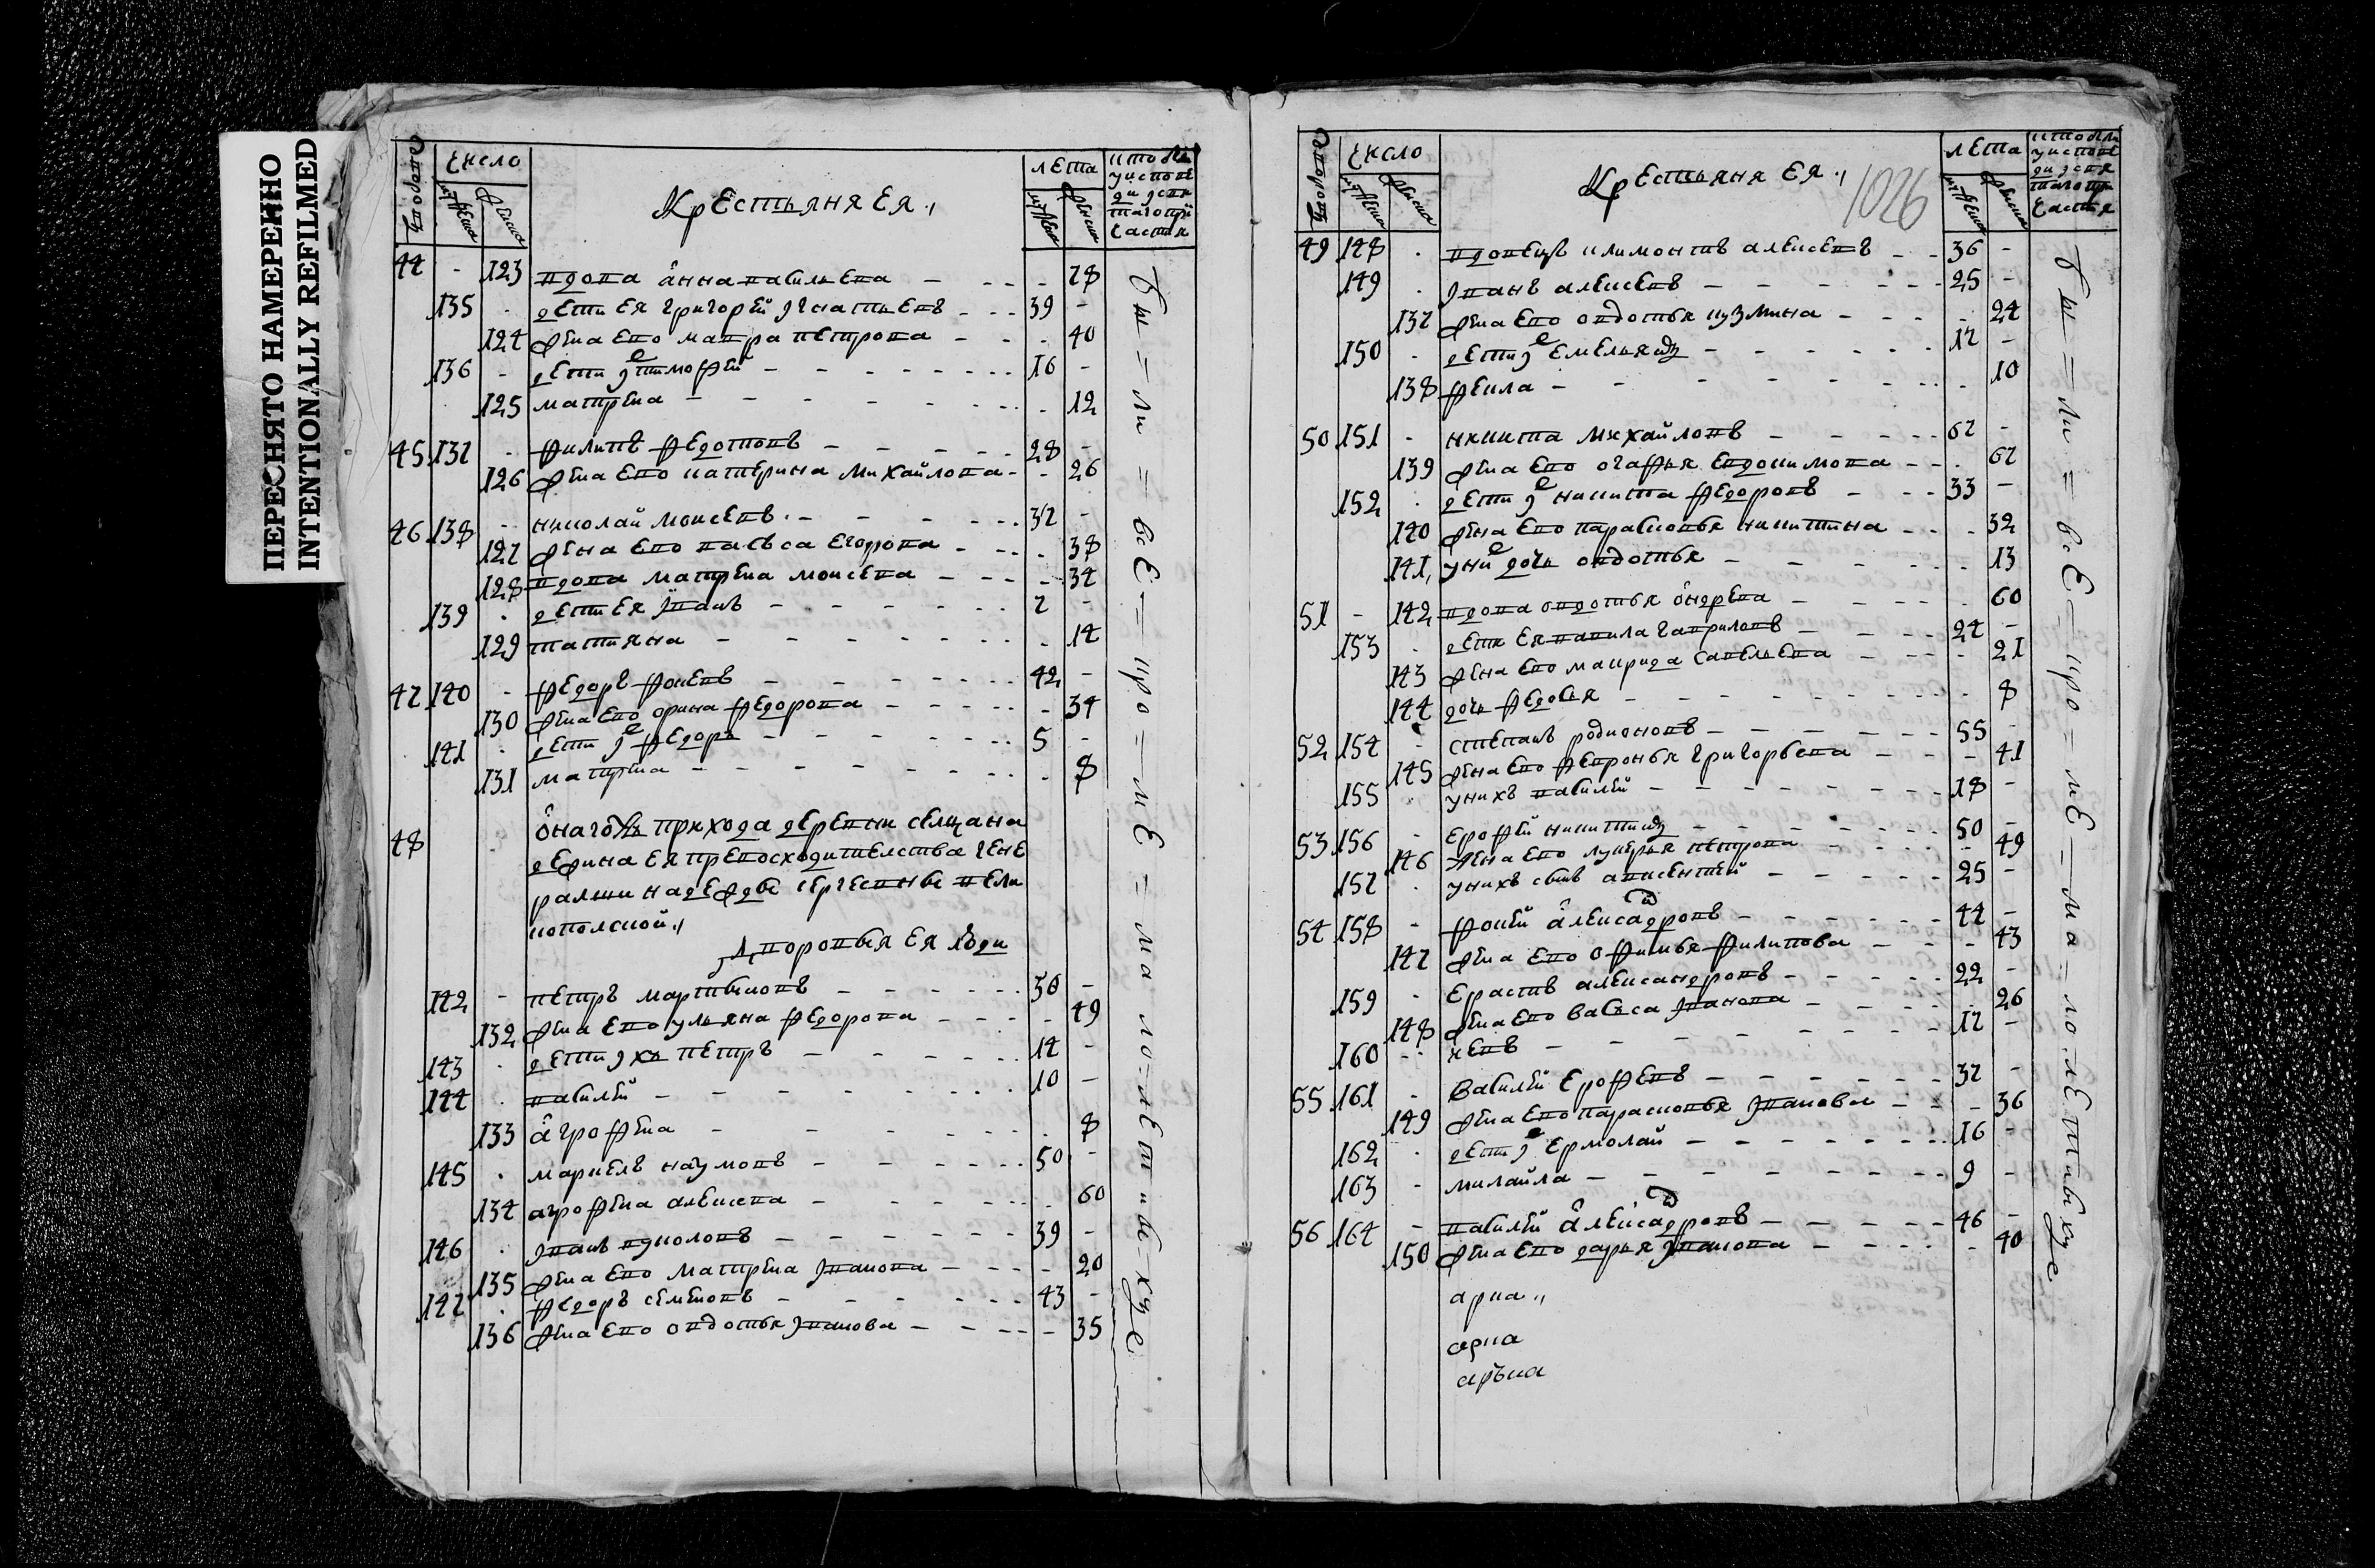 ПЕРЕСНЯТО НАМЕРЕННО
INTENTIONALLY REFILMED
число
Крестьяня ея
лета
44 - 123 вдова анна василева - 78
135 дети ея григорей игнатьевъ 39 -
124 жена ево матра петрова - 40
136 - дети их тимофей 16 -
125 матрена - 12
45 137 - филипъ федотовъ 28 -
126 жена ево катерина михайлова - 26
46 138 - николай моисевъ 37 -
127 жена ево васъса егорова - 38
128 вдова матрена моисева - 34
139 дети ея иванъ 7 -
129 татияна - 14
47 140 - федоръ фокевъ 42 -
130 жена ево орина федорова - 34
141 дети их федоръ 5 -
131 матрена - 8
48 онагожъ прихода деревни селщана
дедина ея превосходителства гене
ралши надежде сергеевне
дворовыя ея люди
142 - петръ мартыновъ 50 -
132 жена ево ульяна федорова - 49
143 дети ихъ петръ 14 -
144 василей 10 -
133 агрофена - 8
145 маркелъ наумовъ 50 -
134 агрофена алексева - 60
146 иванъ вуколовъ 39 -
135 жена ево матрена иванова - 20
147 федоръ семеновъ 43 -
136 жена ево овдотья иванова - 35
бы = ли = все = про = ме = ма ло = лет ны = хъ
число
Крестьяня ея
1026
лета
49 148 вдовецъ климонтъ алексевъ 36 -
149 иванъ алексевъ 25 -
137 жена ево овдотья кузмина - 24
150 дети их емельянъ 17 -
138 фекла - 10
50 151 - никита михайловъ 67 -
139 жена ево огафья евдокимова - 67
152 дети их никита федоровъ 33 -
140 жена ево парасковья никитина - 32
141 у них дочь овдотья - 13
51 - 142 вдова овдотья ондрева - 60
153 дети ея вавила гавриловъ 24 -
143 жена ево маврида савельева - 21
144 дочь федосья - 8
52 154 - степанъ родионовъ 55 -
145 жена ево февронья григорьева - 41
155 у нихъ василей 18 -
53 156 - ерофей никитинъ 50 -
146 жена ево лукерья петрова - 49
157 у нихъ сынъ авксентей 25 -
54 158 - фокей александровъ 44 -
147 жена ево офимья филипова - 43
159 ерастъ александровъ 22 -
148 жена ево васъса иванова - 26
160 11 -
55 161 - василей ерофеевъ 37 -
149 жена ево парасковья иванова - 36
162 дети их ермолай 16 -
163 - михайла 9 -
56 164 - василей александровъ 46 -
150 жена ево дарья иванова - 40
арна
арна
аръна
бы = ли = все = про = ме = ма = ло = лет ныхъ